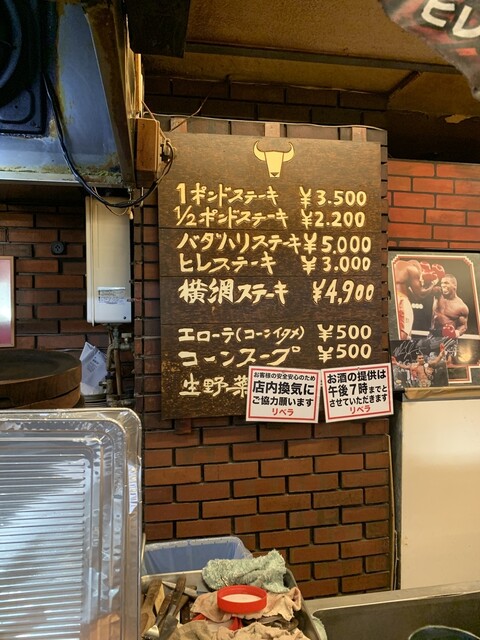 ヒレ
1ポンドステーキ ¥3.500
1/2ポンドステーキ ¥2.200
バダハリステーキ ¥5,000
ヒレステーキ ¥3,000
横綱ステーキ ¥4,900
エローテ(コーンイタメ) ¥500
コーンスープ ¥500
生野菜
お客様の安全安心のため
店内換気に
ご協力願います
リベラ
お酒の提供は
午後7時までと
させていただきます
リベラ